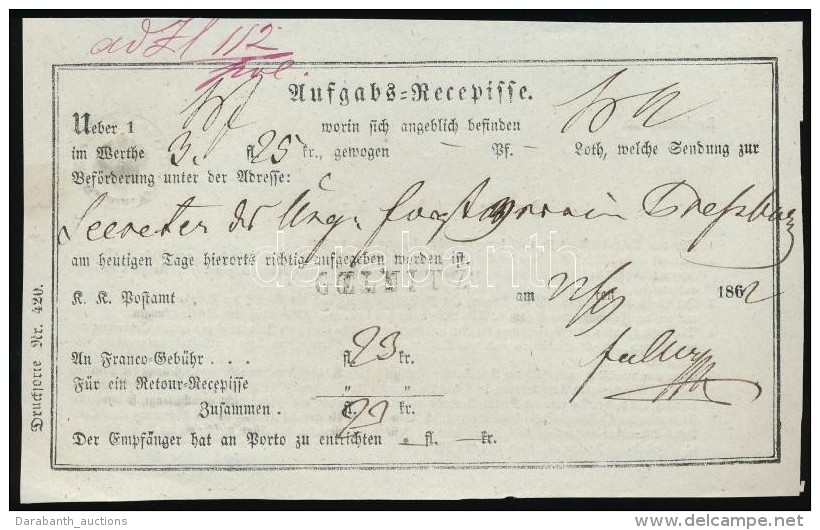 ad Zl 112
Aufgabs=Recepisse.
Ueber 1 worin sich angeblich befinden
im Werthe 3. fl 25 kr., gewogen — Pf. — Loth, welche Sendung zur
Beförderung unter der Adresse:
Secreter ds Ung: Forstverein Pressburg
am heutigen Tage hierorts richtig aufgegeben worden ist.
K. K. Postamt GÖLNITZ am ten 1862
An Franco-Gebühr . . . fl. 23 kr.
Für ein Retour-Recepisse " "
Zusammen . fl. 23 kr.
Der Empfänger hat an Porto zu entrichten - fl. — kr.
Drucksorte Nr. 420.
darabanth
Darabanth_auctions
delcampe.net